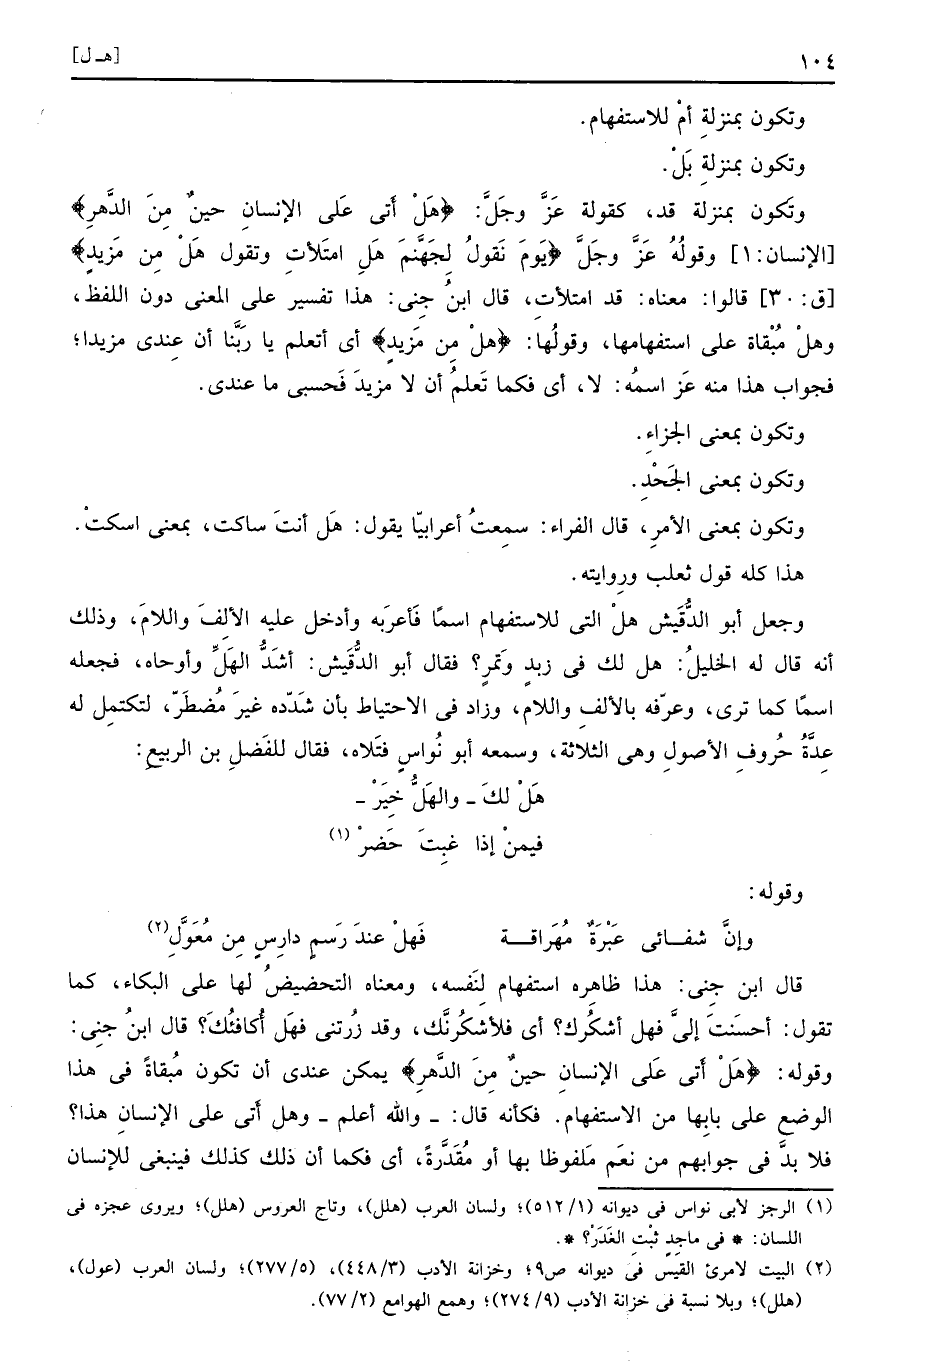 ١٠٤ [هـ ل]
وتكون بمنزلةِ أمْ للاستفهام.
وتكون بمنزلةِ بَلْ.
وتَكون بمنزلة قد، كقولة عَزَّ وجَلَّ: ﴿هَلْ أَتى عَلى الإنسانِ حينٌ مِنَ الدَّهرِ﴾
[الإنسان:١] وقولُهُ عَزَّ وجَلَّ ﴿يَومَ نَقولُ لِجَهَنَّمَ هَلِ امتَلأتِ وتقول هَلْ مِن مَزيدٍ﴾
[ق:٣٠] قالوا: معناه: قد امتلأت، قال ابنُ جنى: هذا تفسير على المعنى دون اللفظ،
وهلْ مُبْقاة على استفهامها، وقولُها: ﴿هلْ مِن مَزيدٍ﴾ أى أتعلم يا رَبَّنا أن عِندى مزيدا؛
فجواب هذا منه عَز اسمُه: لا، أى فكما تَعلمُ أن لا مزيدَ فَحسبى ما عندى.
وتكون بمعنى الجزاءِ.
وتكون بمعنى الجَحْدِ.
وتكون بمعنى الأمرِ، قال الفراء: سمعتُ أعرابيّا يقول: هَل أنتَ ساكت، بمعنى اسكتْ.
هذا كله قول ثعلب وروايته.
وجعل أبو الدُّقَيش هلْ التى للاستفهام اسمًا فَأعربَه وأدخل عليه الألفَ واللامَ، وذلك
أنه قال له الخليلُ: هل لك فى زبدٍ وَتمرٍ؟ فقال أبو الدُّقَيش: أشَدُّ الهَلِّ وأوحاه، فجعله
اسمًا كما ترى، وعرّفه بالألفِ واللام، وزاد فى الاحتياط بأن شَدّده غيرَ مُضطَرّ، لتكتمِل له
عِدَّةُ حُروفِ الأصولِ وهى الثلاثة، وسمعه أبو نُواسٍ فتَلاه، فقال للفَضلِ بن الربيعِ:
هَلْ لكَ ـ والهَلُّ خِيَرْ ـ
فيمنْ إذا غِبتَ حَضرْ (١)
وقوله:
وإنَّ شفـائى عَبْرَةٌ مُهَراقـة فَهلْ عندَ رَسمٍ دارسٍ مِن مُعَوَّلِ(٢)
قال ابن جنى: هذا ظاهره استفهام لِنَفسه، ومعناه التحضيضُ لها على البكاء، كما
تقول: أحسَنتَ إلىَّ فهل أشكُرك؟ أى فلأشكُرنَّك، وقد زُرتنى فهَل أُكافئُكَ؟ قال ابنُ جنى:
وقوله: ﴿هَلْ أَتى عَلَى الإنسانِ حينٌ مِنَ الدَّهرِ﴾ يمكن عندى أن تكون مُبقاةً فى هذا
الوضع على بابِها من الاستفهام. فكأنه قال: ـ والله أعلم ـ وهل أَتى على الإنسانِ هذا؟
فلا بدَّ فى جوابهم من نعَم مَلفوظا بها أو مُقَدَّرةً، أى فكما أن ذلك كذلك فينبغى للإنسان
(١) الرجز لأبى نواس فى ديوانه (٥١٢/١)؛ ولسان العرب (هلل)، وتاج العروس (هلل)؛ ويروى عجزه فى
اللسان: * فى ماجدٍ ثبْتِ الغَدَرْ؟ *.
(٢) البيت لامرئ القيس فى ديوانه ص٩؛ وخزانة الأدب (٤٤٨/٣)، (٢٧٧/٥)؛ ولسان العرب (عول)،
(هلل)؛ وبلا نسبة فى خزانة الأدب (٢٧٤/٩)؛ وهمع الهوامع (٧٧/٢).